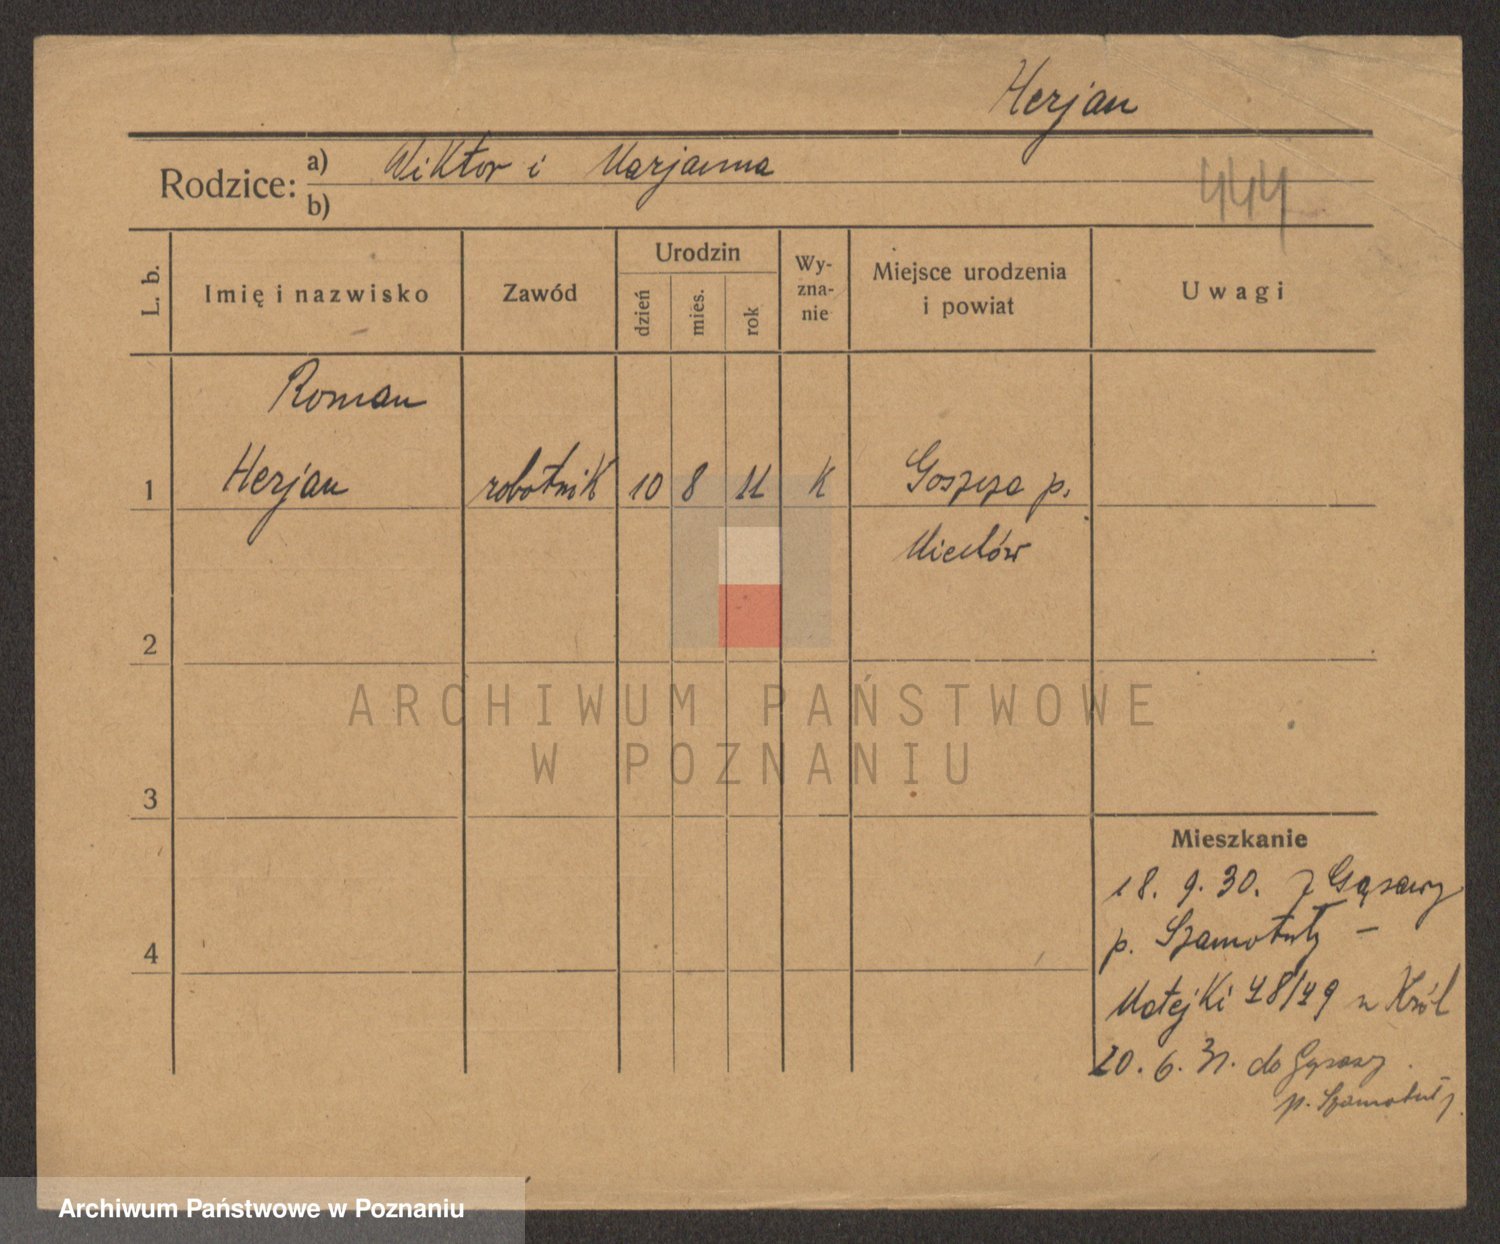 Herjan
Rodzice: a) Wiktor i Marjanna
b)
444
L. b.
Imię i nazwisko
Zawód
Urodzin
dzień
mies.
rok
Wy-
zna-
nie
Miejsce urodzenia
i powiat
Uwagi
Roman
1 Herjan robotnik 10 8 11 K Goszcza p.
Miechów
2
3
4
Mieszkanie
18. 9. 30. z Gąsawy
p. Szamotuły -
Matejki 48/49 u Król
20. 6. 31. do Gąsawy
p. Szamotuły
ARCHIWUM PAŃSTWOWE
W POZNANIU
Archiwum Państwowe w Poznaniu